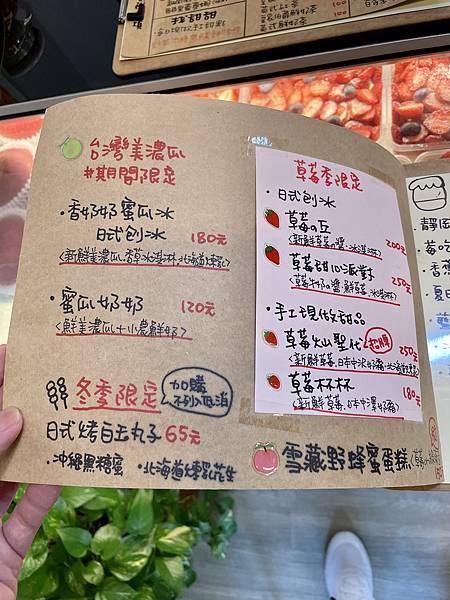 台灣美濃瓜
#期間限定
・香奶奶蜜瓜冰
日式刨冰 180元
<新鮮美濃瓜、香草冰淇淋、北海道煉乳>
・蜜瓜奶奶 120元
<鮮美濃瓜+小農鮮奶>
冬季限定
加購
不列入低消
日式烤白玉丸子 65元
・沖繩黑糖蜜 ・北海道煉乳花生
草莓季限定
・日式刨冰
草莓の丘 200元
<新鮮草莓の醬、冰淇淋>
草莓甜心派對 250元
<草莓牛奶の醬、鮮草莓、冰淇淋>
・手工現做甜品
草莓火山聖代 起膜 250元
<新鮮草莓、日本中沢奶霜、北海道
草莓杯杯 180元
<新鮮草莓、日本中澤奶霜>
雪藏野蜂蜜蛋糕
靜岡
莓吃
香蕉
夏日